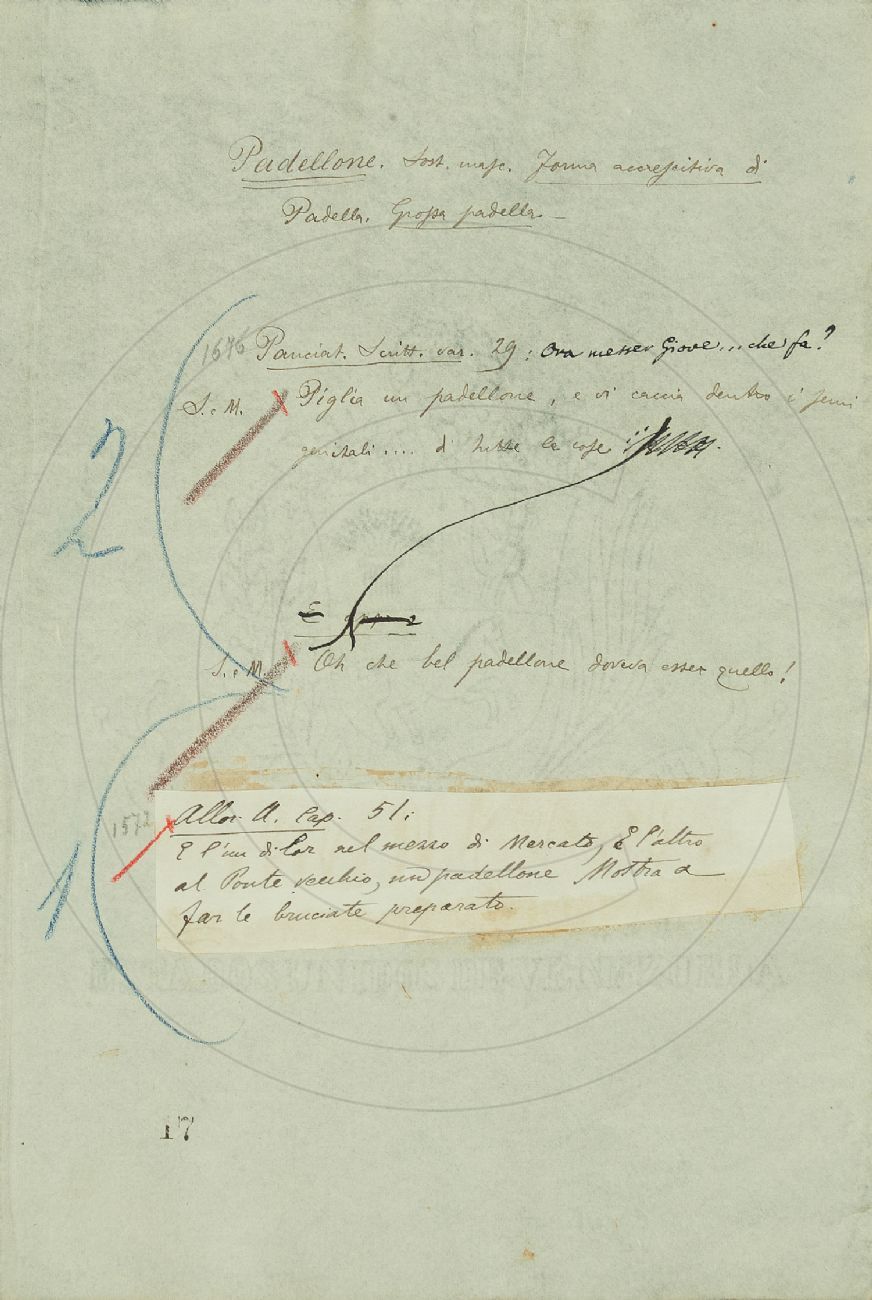 Padellone. Sost. masc. Forma accrescitiva di
Padella. Grossa padella. —
1676 Panciat. Scritt. var. 29: Ora messer Giove... che fa?
S. e M. Piglia un padellone, e vi caccia dentro i semi
genitali.... di tutte le cose
S. e M. Oh che bel padellone doveva esser quello!
2
1572 Allor. A. Cap. 51.
E l'un di lor nel mezzo di Mercato, E l'altro
al Ponte vecchio, un padellone Mostra a
far le bruciate preparato.
1
17